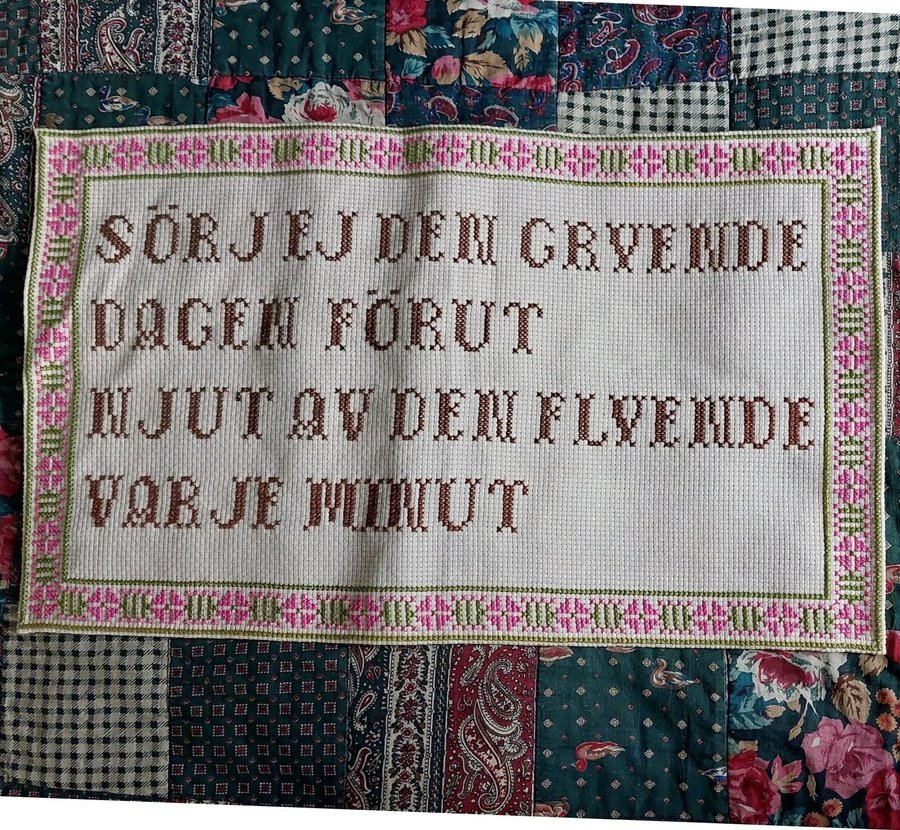 SÖRJ EJ DEN GRYENDE
DAGEN FÖRUT
NJUT AV DEN FLYENDE
VARJE MINUT